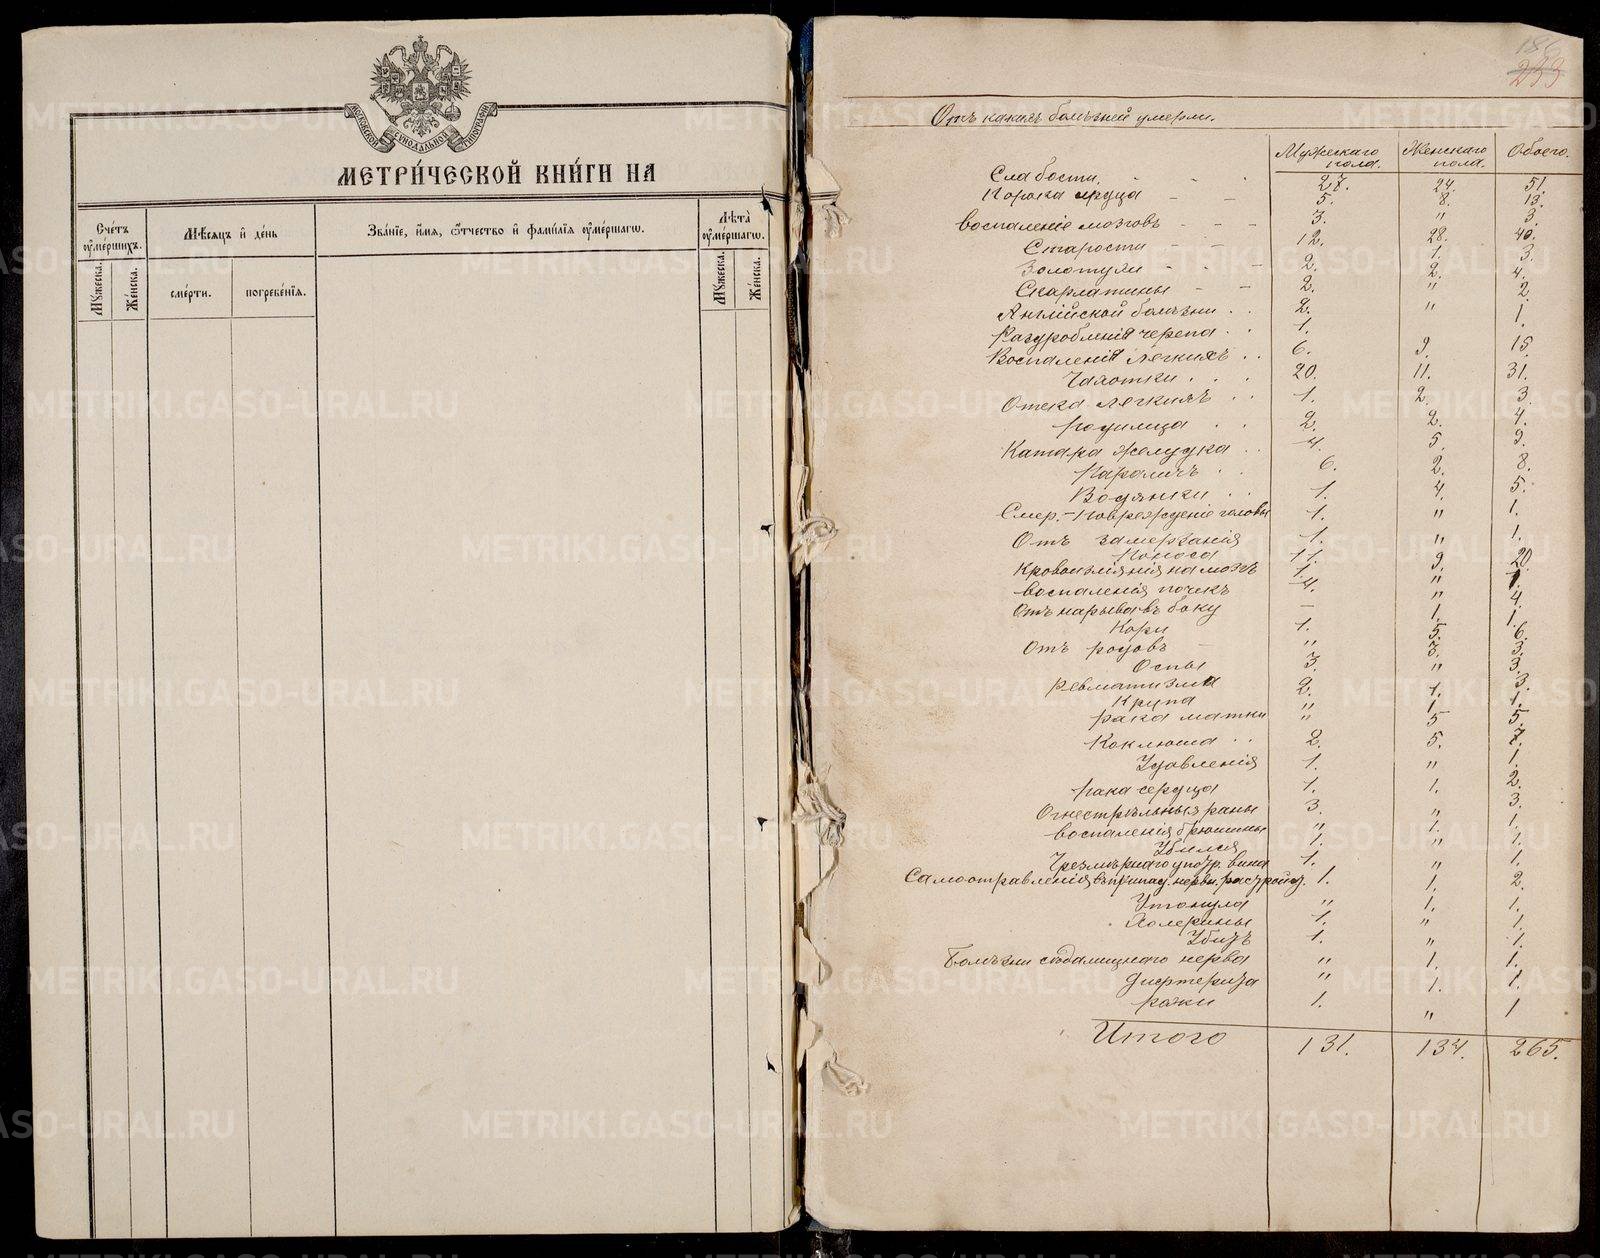 МОСКОВСКОЙ СѴНОДАЛЬНОЙ ТИПОГРАФІИ
МЕТРИ́ЧЕСКОЙ КНИ́ГИ НА
Сче́тъ ᲂумéршихъ.
Мѣ́сяцъ и҆ де́нь
Зва́нїе, и҆́мя, ѻ҆́тчество и҆ фами́лїѧ ᲂумéршагѡ.
Лѣта̀ ᲂумéршагѡ.
Мꙋ́жеска.
Же́нска.
сме́рти.
погребе́нїѧ.
Мꙋ́жеска.
Же́нска.
186
233
Отъ какихъ болѣзней умерли.
Мужескаго пола. Женскаго пола. Обоего.
Слабости 27. 24. 51.
Порока сердца 5. 8. 13.
воспаленіе мозговъ 3. " 3.
Старости 12. 28. 40.
Золотухи 2. 1. 3.
Скарлатины 2. 2. 4.
Англійской болѣзни 2. " 2.
Разуробленія черепа 1. " 1.
Воспаленія легкихъ 6. 9. 15.
Чахотки 20. 11. 31.
Отека легкихъ 1. 2. 3.
родимца 2. 2. 4.
Катара желудка 4. 5. 9.
Параличъ 6. 2. 8.
Водянки 1. 4. 5.
Смер.-Поврежденіе головы 1. " 1.
Отъ замерзанія 1. " 1.
Поноса 11. 9. 20.
Кровоизліянія на мозгъ 1. " 1.
воспаленія почекъ 4. " 4.
Отъ нарыва въ боку – 1. 1.
Кори 1. 5. 6.
Отъ родовъ " 3. 3.
Оспы 3. " 3.
ревматизма 2. 1. 3.
Крупа " 1. 1.
рака матки " 5 5.
Коклюша 2. 5. 7.
Удавленія 1. " 1.
рака сердца 1. 1. 2.
Огнестрѣльныя раны 3. " 3.
воспаленія брюшины " 1. 1.
Убился 1. " 1.
Чрезмѣрнаго употр. вина 1. " 1.
Самоотравленія въ припад. нервн. растройст. 1. 1. 2.
Утонула " 1. 1.
Холерины 1. " 1.
Убитъ 1. " 1.
Болѣзни сѣдалищнаго нерва " 1. 1.
дифтерита " 1. 1.
рожи 1. " 1
Итого 131. 134. 265.
METRIKI.GASO-URAL.RU